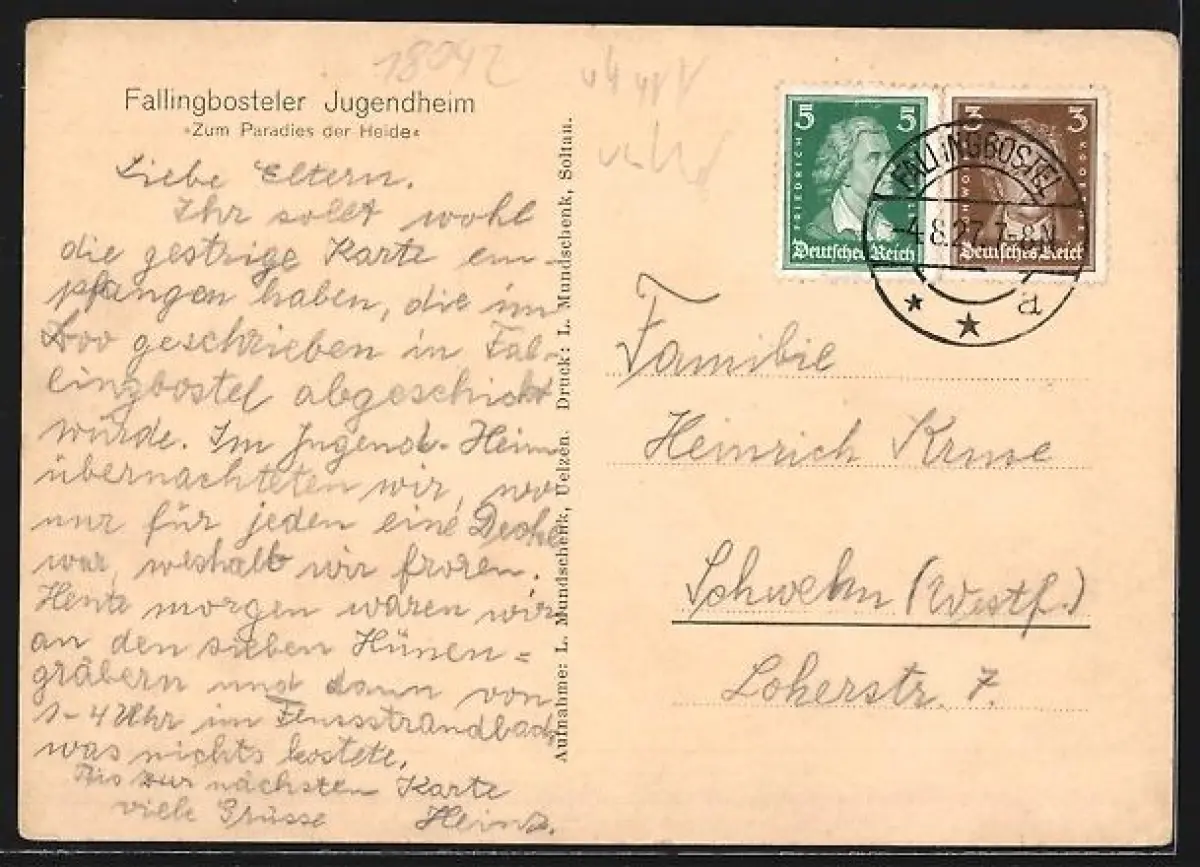 18042
Fallingbosteler Jugendheim
»Zum Paradies der Heide«
Liebe Eltern.
Ihr sollt wohl
die gestrige Karte em-
pfangen haben, die im
geschrieben in Fal-
lingbostel abgeschickt
wurde. Im Jugend-Heim
übernachteten wir, wo
nur für jeden eine Decke
war, weshalb wir froren.
Heute morgen waren wir
an den sieben Hünen=
gräbern und dann von
-4 Uhr im Flussstrandbad,
was nichts kostete.
Bis zur nächsten Karte
viele Grüsse Heinz.
Aufnahme: L. Mundschenk, Uelzen. Druck: L. Mundschenk, Soltau.
5 5
FRIEDRICH
Deutsches Reich
3 3
Deutsches Reich
FALLINGBOSTEL
4.8.27.7-8N
a
Familie
Heinrich Kruse
Schwelm (Westf.)
Loherstr. 7.